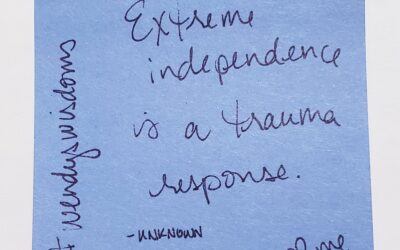 Extreme
independence
is a trauma
response.
-UNKNOWN
wendyswisdoms